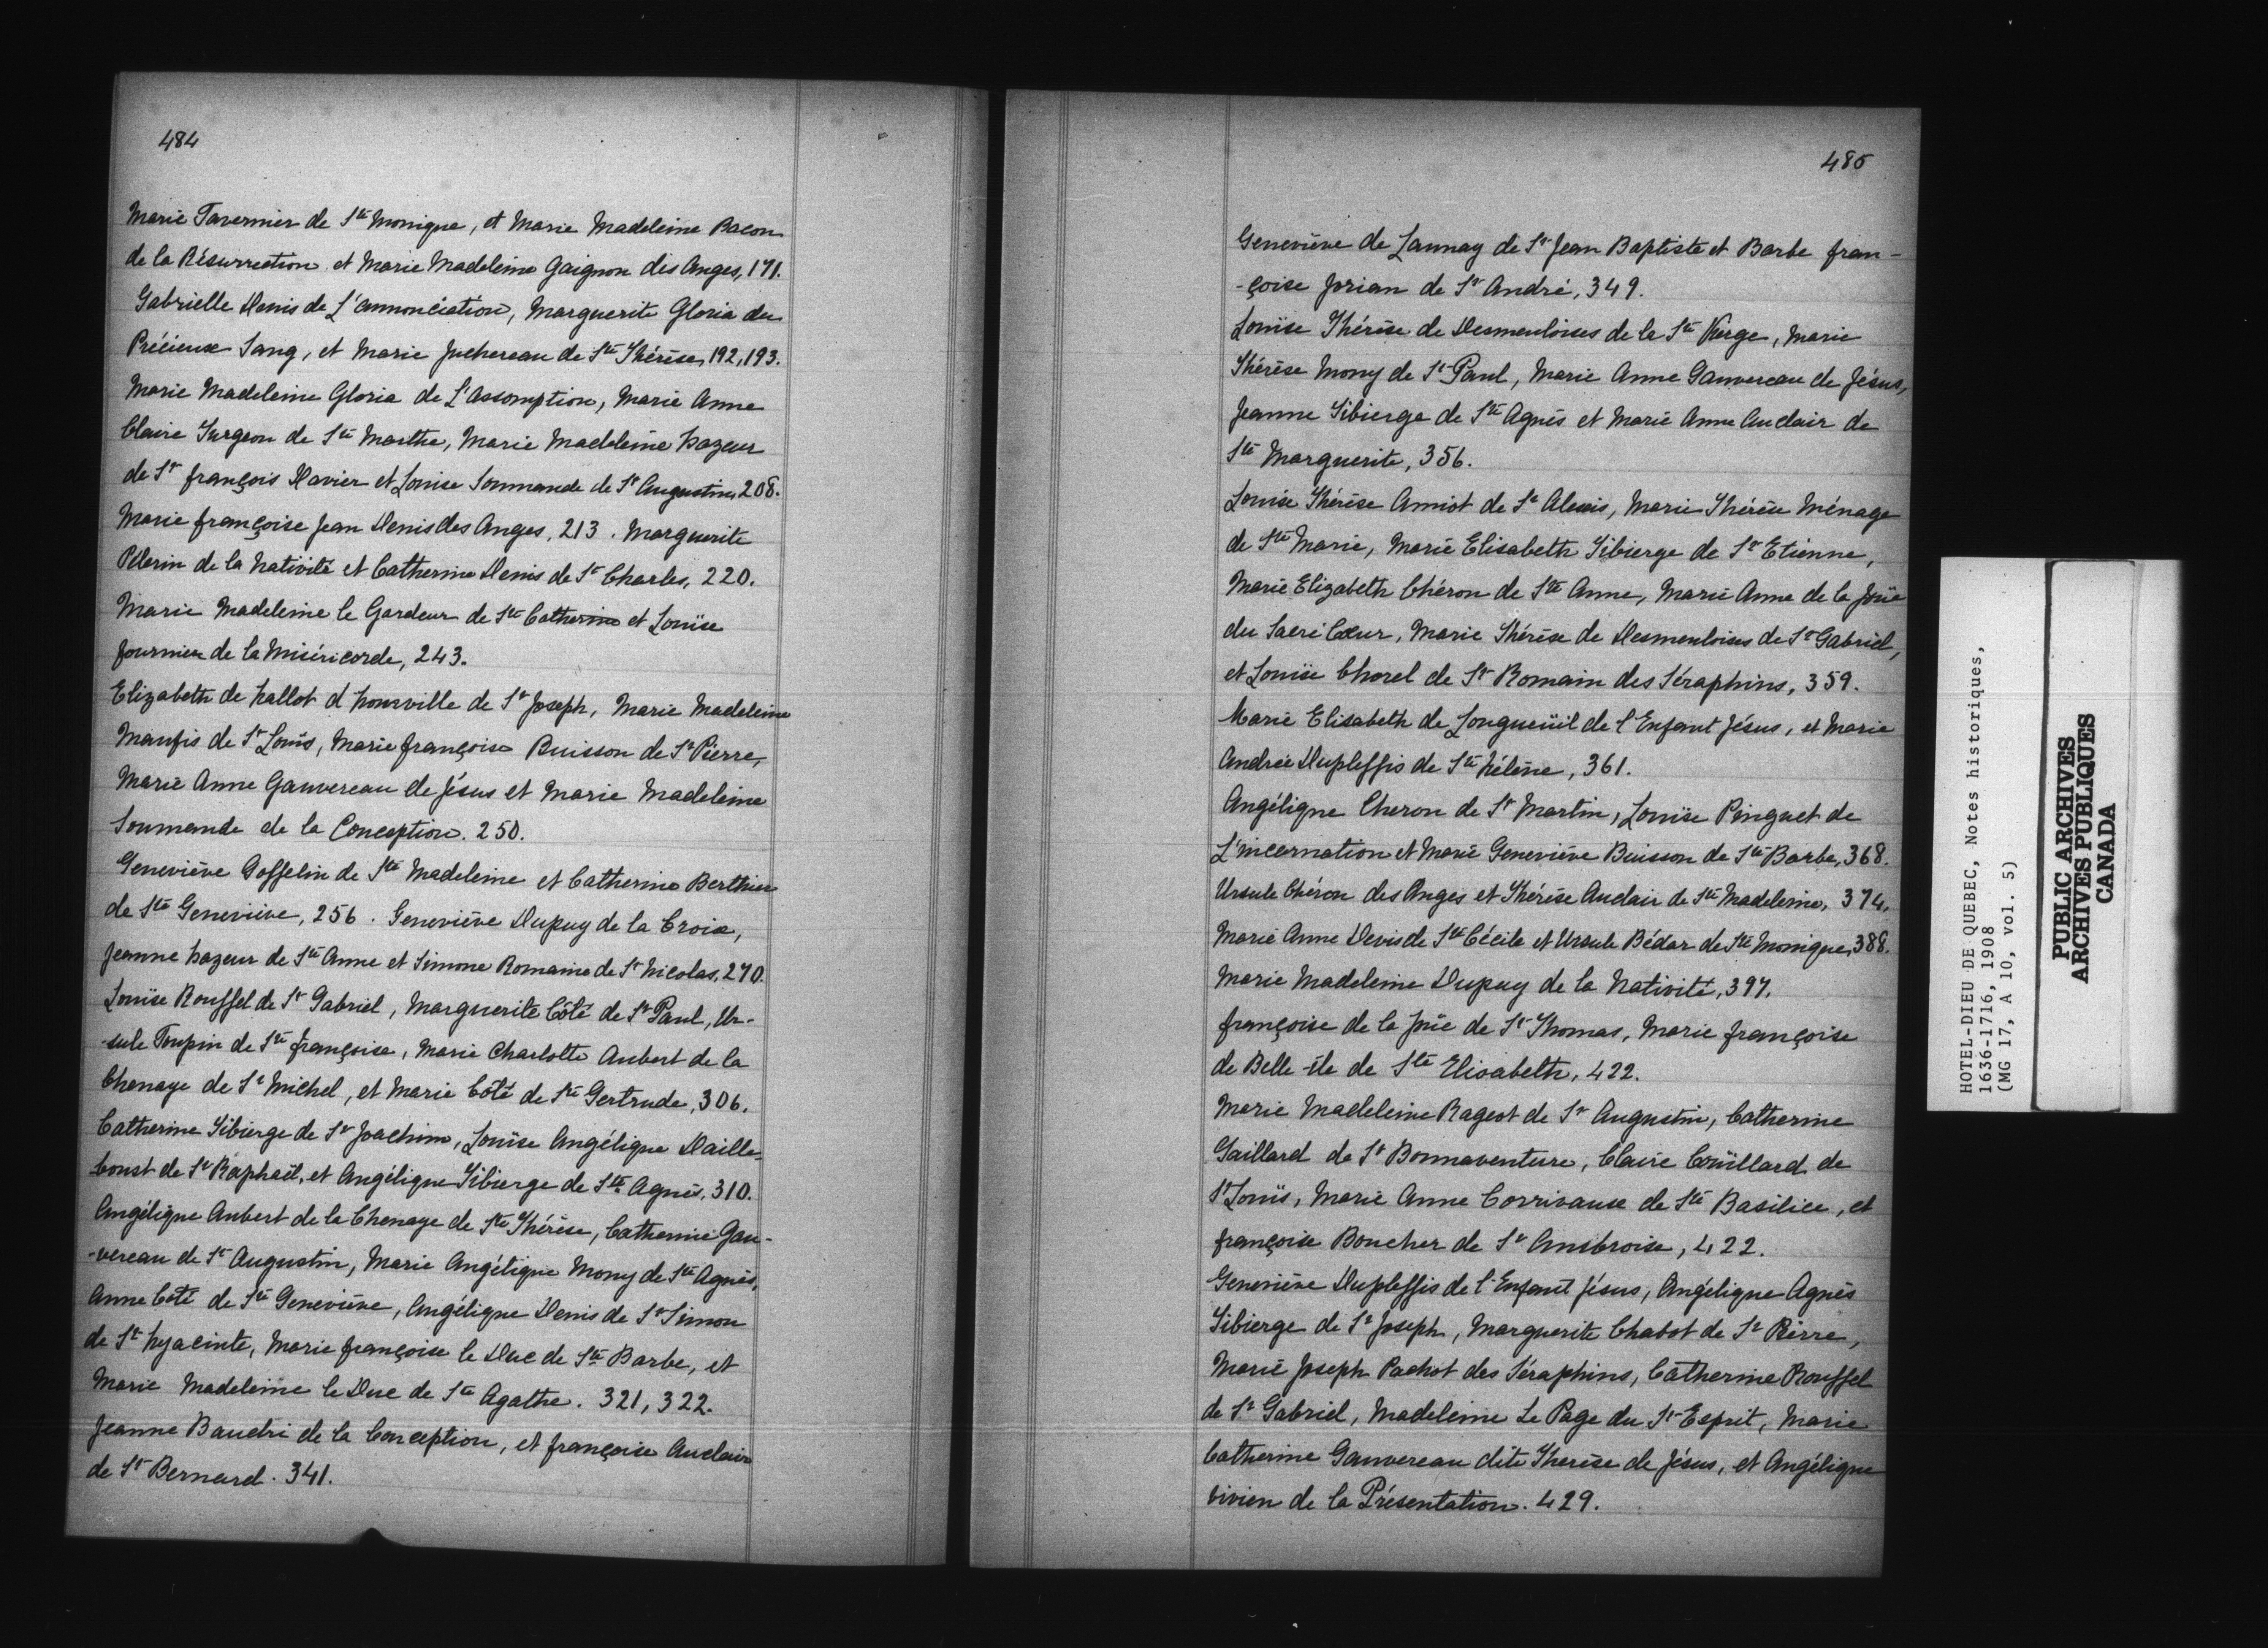 484
Marie Tavernier de Ste Monique, et Marie Madeleine Bacon
de la Résurrection et Marie Madeleine Gaignon des Anges, 171.
Gabrielle Denis de L'annonciation, Marguerite Gloria du
Précieux Sang, et Marie Juchereau de Ste Thérèse, 192, 193.
Marie Madeleine Gloria de L'assomption, Marie Anne
Claire Turgeon de Ste Marthe, Marie Madeleine hazeur
de St françois Xavier et Louise Soumande de St Augustin, 208.
Marie françoise Jean Denis des Anges, 213. Marguerite
Pélerin de la Nativité et Catherine Denis de St Charles, 220.
Marie Madeleine le Gardeur de Ste Catherine et Louïse
fournier de la Miséricorde, 243.
Elizabeth de hallot d'honville de St Joseph, Marie Madeleine
Maufis de St Louis, Marie françoise Buisson de St Pierre,
Marie Anne Gauvereau de Jésus et Marie Madeleine
Soumande de la Conception. 250.
Geneviève Gosselin de Ste Madeleine et Catherine Berthier
de Ste Geneviève, 256. Geneviève Dupuy de la Croix,
Jeanne hazeur de Ste Anne et Simone Romaine de St Nicolas, 270.
Louïse Roussel de St Gabriel, Marguerite Côté de St Paul, Ur-
-sule Toupin de Ste françoise, Marie Charlotte Aubert de la
Chenaye de St Michel, et Marie Côté de Ste Gertrude, 306.
Catherine Sibierge de St Joachim, Louïse Angélique Daille-
boust de St Raphaël, et Angélique Tibierge de Ste Agnès, 310.
Angélique Aubert de la Chenaye de Ste Thérèse, Catherine Gau-
-vereau de St Augustin, Marie Angélique Mony de Ste Agnès,
Anne Coté de Ste Geneviève, Angélique Denis de St Simon
de St hyacinte, Marie françoise le Duc de Ste Barbe, et
Marie Madeleine le Duc de Ste Agathe. 321, 322.
Jeanne Baudri de la Conception, et françoise Auclair
de St Bernard. 341.
485
Geneviève de Launay de St Jean Baptiste et Barbe fran-
-çoise Jorian de St André, 349.
Louïse Thérèse de Desmeuloises de la Ste Vierge, Marie
Thérèse Mony de St Paul, Marie Anne Gauvereau de Jésus,
Jeanne Tibierge de Ste Agnès et Marie Anne Auclair de
Ste Marguerite, 356.
Louise Thérèse Amiot de St Alexis, Marie Thérèse Ménage
de Ste Marie, Marie Elisabeth Tibierge de St Etienne,
Marie Elizabeth Chéron de Ste Anne, Marie Anne de la Joüe
du Sacré Cœur, Marie Thérèse de Desmeuloises de St Gabriel,
et Louïse Chorel de St Romain des Séraphins, 359.
Marie Elisabeth de Longueüil de l'Enfant Jésus, et Marie
Andrée Duplessis de Ste hélène, 361.
Angélique Cheron de St Martin, Louïse Pinguet de
L'incarnation et Marie Geneviève Buisson de Ste Barbe, 368.
Ursule Chéron des Anges et Thérèse Auclair de Ste Madeleine, 374.
Marie Anne Devis de Ste Cécile et Ursule Bédar de Ste Monique, 388.
Marie Madeleine Dupuy de la Nativité, 397.
françoise de la Joüe de St Thomas, Marie françoise
de Belle-île de Ste Elisabeth, 422.
Marie Madeleine Rageot de St Augustin, Catherine
Gaillard de St Bonnaventure, Claire Coüillard de
St Louïs, Marie Anne Corrivaux de Ste Basilice, et
françoise Boucher de St Ambroise, 422.
Geneviève Duplessis de l'Enfant Jésus, Angélique Agnès
Tibierge de St Joseph, Marguerite Chabot de St Pierre,
Marie Joseph Pachot des Séraphins, Catherine Roussel
de St Gabriel, Madeleine Le Page du St Esprit, Marie
Catherine Gauvereau dite Therèse de Jésus, et Angélique
vivien de la Présentation. 429.
HOTEL-DIEU DE QUEBEC, Notes historiques,
1636-1716, 1908
(MG 17, A 10, vol. 5)
PUBLIC ARCHIVES
ARCHIVES PUBLIQUES
CANADA